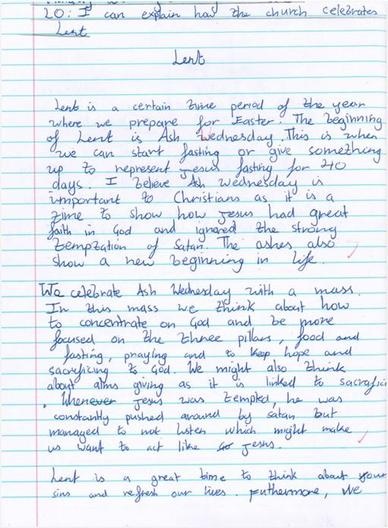 LO: I can explain had the church celebrates
Lent
Lent
Lent is a certain time period of the year
where we prepare for Easter. The beginning
of Lent is Ash Wednesday. This is when
we can start fasting or give something
up to represent Jesus fasting for 40
days. I believe Ash Wednesday is
important to Christians as it is a
time to show how Jesus had great
faith in God and ignored the strong
temptation of Satan. The ashes also
show a new beginning in life.
We celebrate Ash Wednesday with a mass.
In this mass we think about how
to concentrate on God and be more
focused on the three pillars, food and
fasting, praying and to keep hope and
sacrificing to God. We might also think
about alms giving as it is linked to sacrific
. Whenever Jesus was tempted, he was
constantly pushed around by Satan but
managed to not listen which might make
us want to act like Jesus.
Lent is a great time to think about your
sins and refresh our lives. Futhermore, we